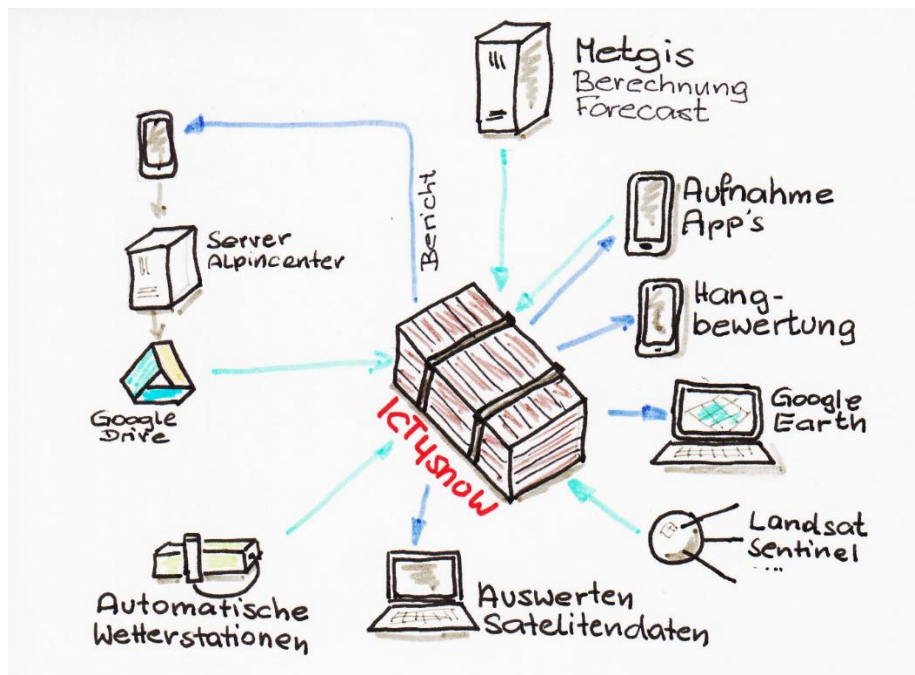 Metgis
Berechnung
Forecast
Bericht
Aufnahme
App's
Server
Alpincenter
Hang-
bewertung
Google
Drive
ICT4snow
Google
Earth
Landsat
Sentinel
....
Automatische
Wetterstationen
Auswerten
Satelitendaten